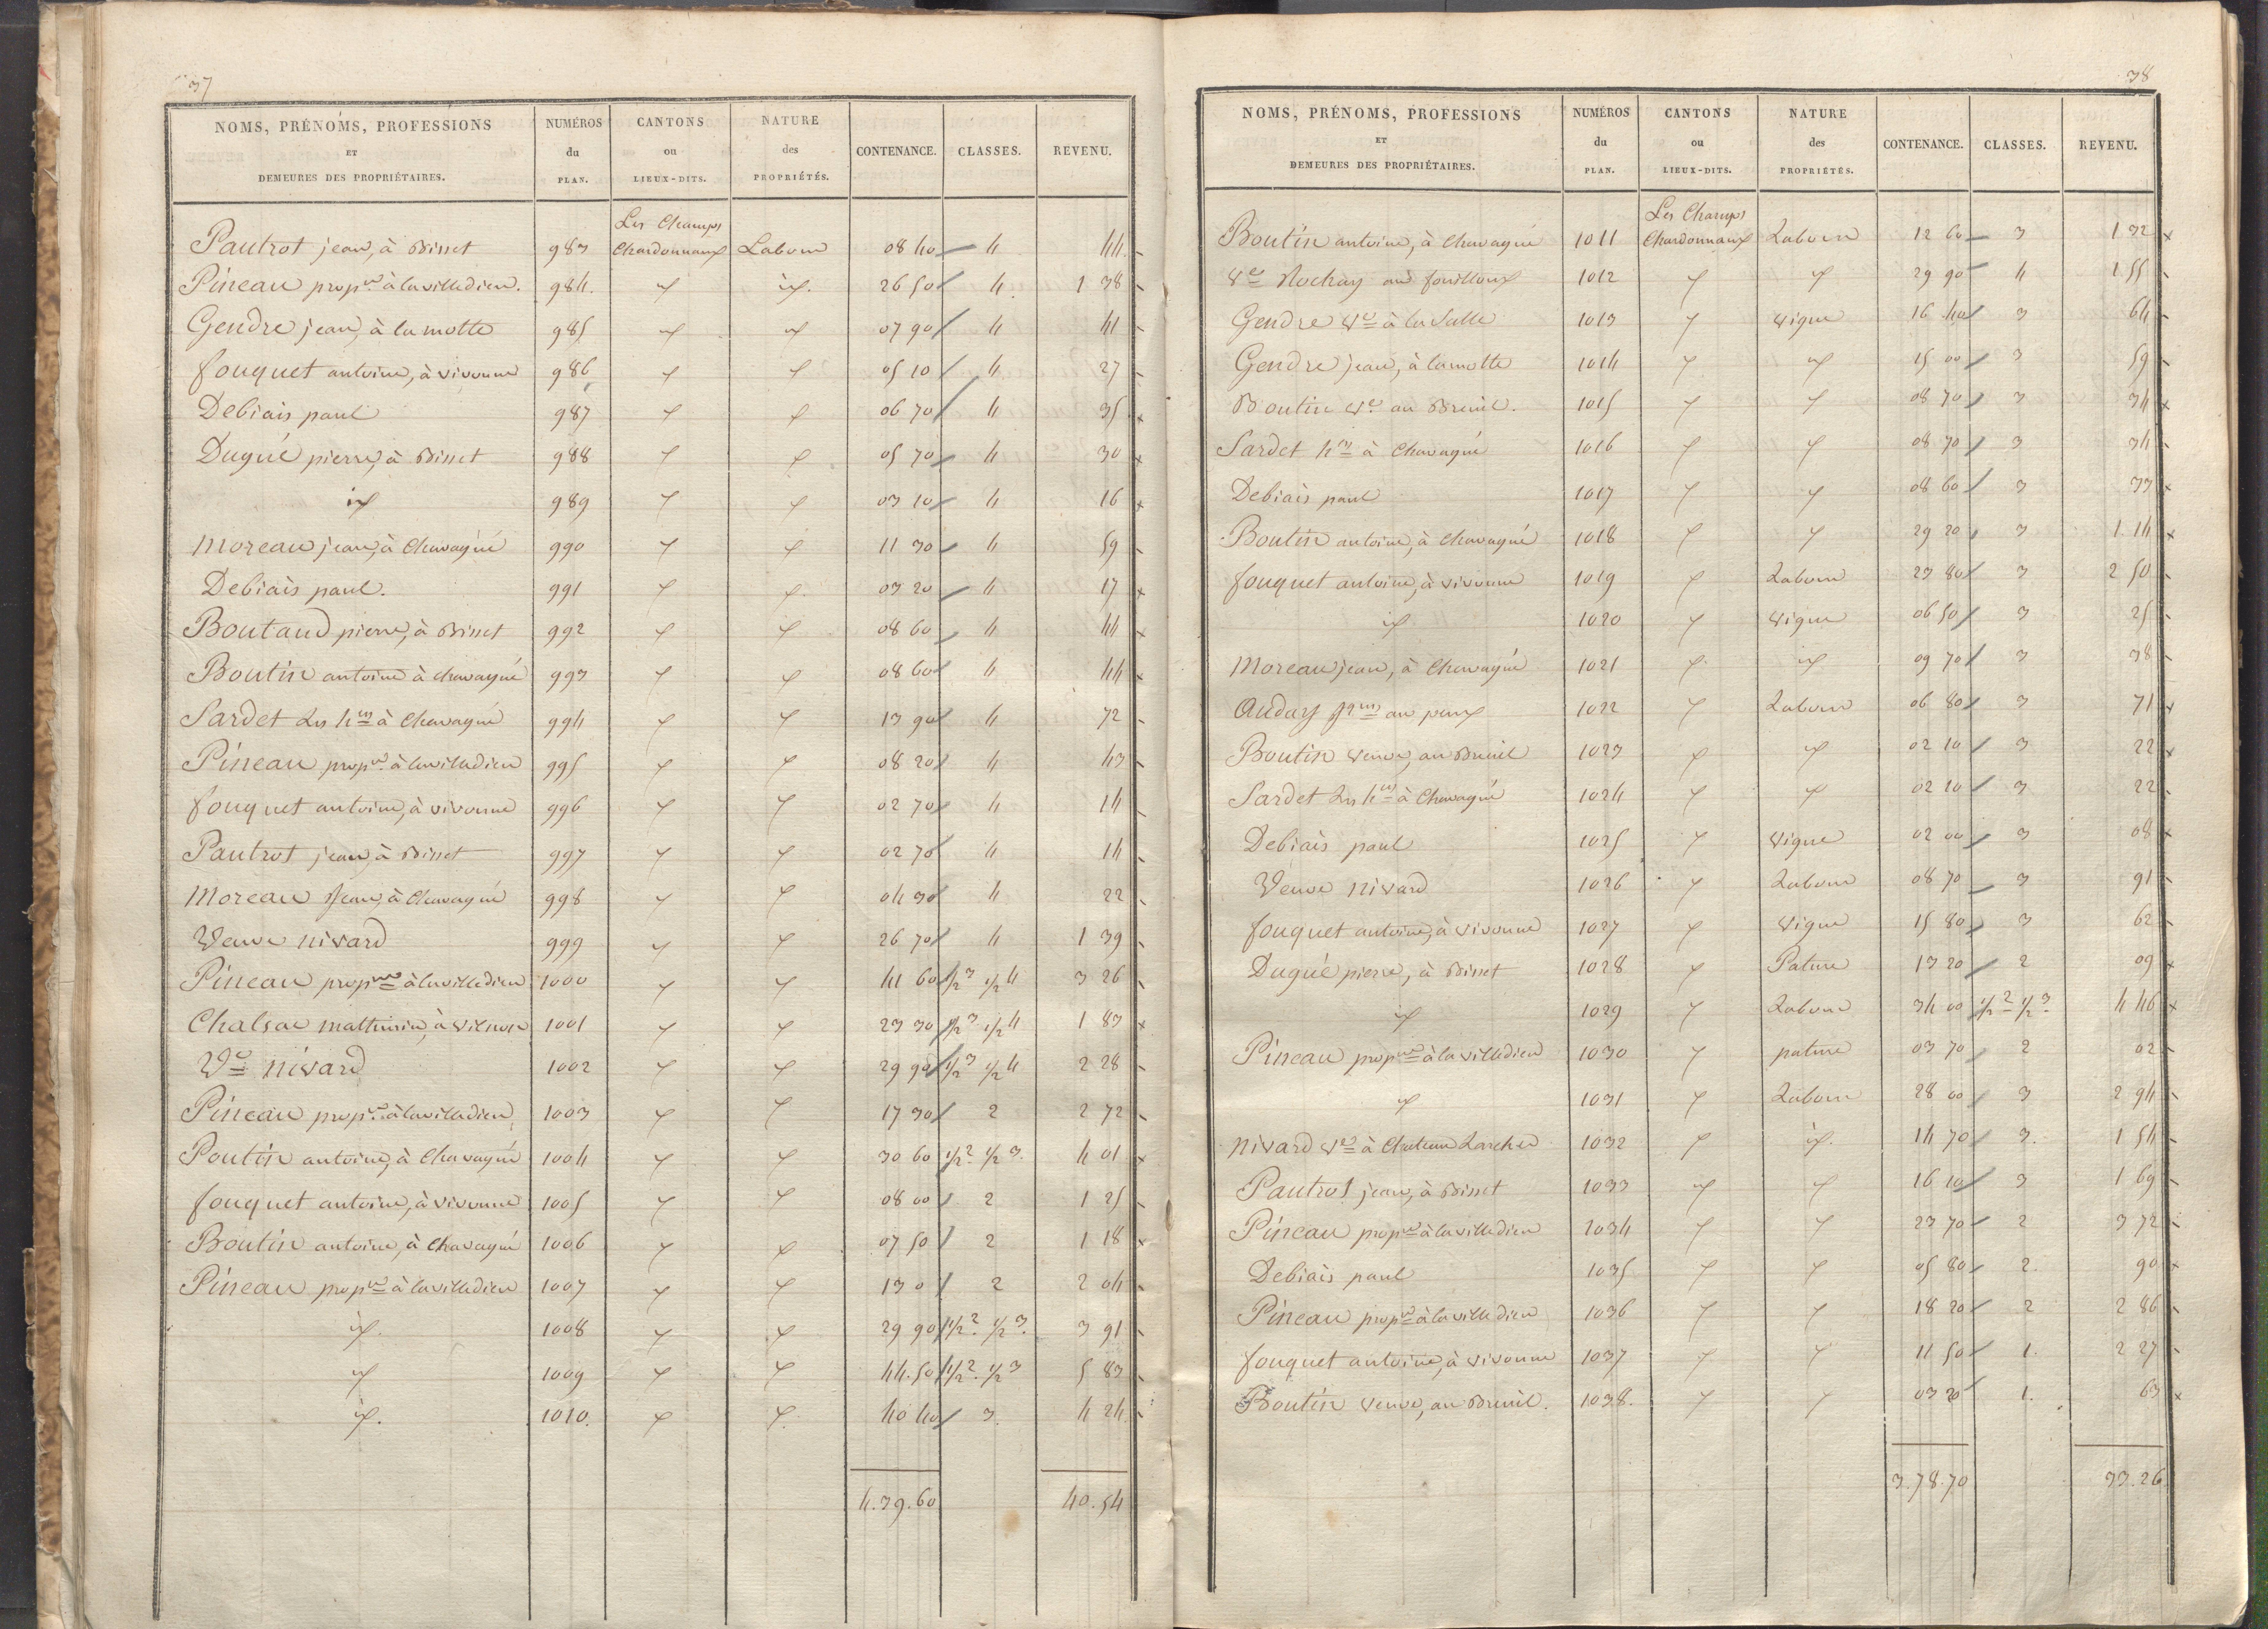 37
NOMS, PRÉNOMS, PROFESSIONS ET DEMEURES DES PROPRIÉTAIRES. | NUMÉROS du PLAN. | CANTONS ou LIEUX-DITS. | NATURE des PROPRIÉTÉS. | CONTENANCE. | CLASSES. | REVENU.
Les Champs
Pautrot jean, à Bisset 983 Chardonnaux Labour 08 40 4 44
Pineau propre à lavilledieu. 984 id id. 26 50 4 1 38
Gendre jean, à la motte 985 id id 07 90 4 41
fouquet antoine, à vivonne 986 id id 05 10 4 27
Debiais paul 987 id id 06 70 4 35
Dugué pierre, à Bisset 988 id id 05 70 4 30
id 989 id id 03 10 4 16
Moreau jean, à Chavagné 990 id id 11 30 4 59
Debiais paul. 991 id id 03 20 4 17
Boutaud pierre, à Bisset 992 id id 08 60 4 44
Boutin antoine à chavagné 993 id id 08 60 4 44
Sardet les hers à Chavagné 994 id id 13 90 4 72
Pineau propre à lavilledieu 995 id id 08 20 4 43
fouquet antoine, à vivonne 996 id id 02 70 4 14
Pautrot jean, à Bisset 997 id id 02 70 4 14
Moreau Jean, à Chavagné 998 id id 04 30 4 22
Veuve nivard 999 id id 26 70 4 1 39
Pineau propre à lavilledieu 1000 id id 41 60 1/2 3 1/2 4 3 26
Chalsac mathurin, à 1001 id id 23 30 1/2 3 1/2 4 1 83
Ve nivard 1002 id id 29 90 1/2 3 1/2 4 2 28
Pineau propre à lavilledieu 1003 id id 17 30 2 2 72
Boutin antoine, à Chavagné 1004 id id 30 60 1/2 2 1/2 3. 4 01
fouquet antoine, à vivonne 1005 id id 08 00 2 1 25
Boutin antoine, à Chavagné 1006 id id 07 50 2 1 18
Pineau propre à lavilledieu 1007 id id 13 0 2 2 04
id. 1008 id id 29 90 1/2 2. 1/2 3. 3 91
id 1009 id id 44.50 1/2 2. 1/2 3 5 83
id. 1010. id id 40 40 3. 4 24
4.39.60 40.54
38
NOMS, PRÉNOMS, PROFESSIONS ET DEMEURES DES PROPRIÉTAIRES. | NUMÉROS du PLAN. | CANTONS ou LIEUX-DITS. | NATURE des PROPRIÉTÉS. | CONTENANCE. | CLASSES. | REVENU.
Les Champs
Boutin antoine, à Chavagné 1011 Chardonnaux Labour 12 60 3 1 32
Ve Rochay au fouilloux 1012 id id 29 90 4 1 55
Gendre Ve à la Salle 1013 id vigne 16 40 3 64
Gendre jean, à lamotte 1014 id id 15 00 3 59
Boutin Ve au Breuil. 1015 id id 08 70 3 34
Sardet hers à Chavagné 1016 id id 08 70 3 34
Debiais paul 1017 id id 08 60 3 33
Boutin antoine, à Chavagné 1018 id id 29 20 3 1 14
fouquet antoine, à vivonne 1019 id Labour 23 80 3 2 50
id 1020 id vigne 06 50 3 25
Moreau jean, à Chavagné 1021 id id 09 70 3 38
Auday au peux 1022 id Labour 06 80 3 71
Boutin veuve, au Breuil 1023 id id 02 10 3 22
Sardet les hers à Chavagné 1024 id id 02 10 3 22
Debiais paul 1025 id vigne 02 00 3 08
Veuve nivard 1026 id Labour 08 70 3 91
fouquet antoine, à vivonne 1027 id vigne 15 80 3 62
Dugué pierre, à Bisset 1028 id Pature 13 20 2 09
id 1029 id Labour 34 00 1/2 2 1/2 3 4 46
Pineau propre à la villedieu 1030 id pature 03 70 2 02
id 1031 id Labour 28 00 3 2 94
nivard Ve à Chateau Larcher 1032 id id. 14 70 3. 1 54
Pautrot jean, à Bisset 1033 id id 16 10 3 1 69
Pineau propre à lavilledieu 1034 id id 23 70 2 3 72
Debiais paul 1035 id id 05 80 2. 90
Pineau propre à lavilledieu 1036 id id 18 20 2 2 86
fouquet antoine, à vivonne 1037 id id 11 50 1. 2 27
Boutin veuve, au Breuil. 1038. id id 03 20 1. 63
3.78.70 33.26